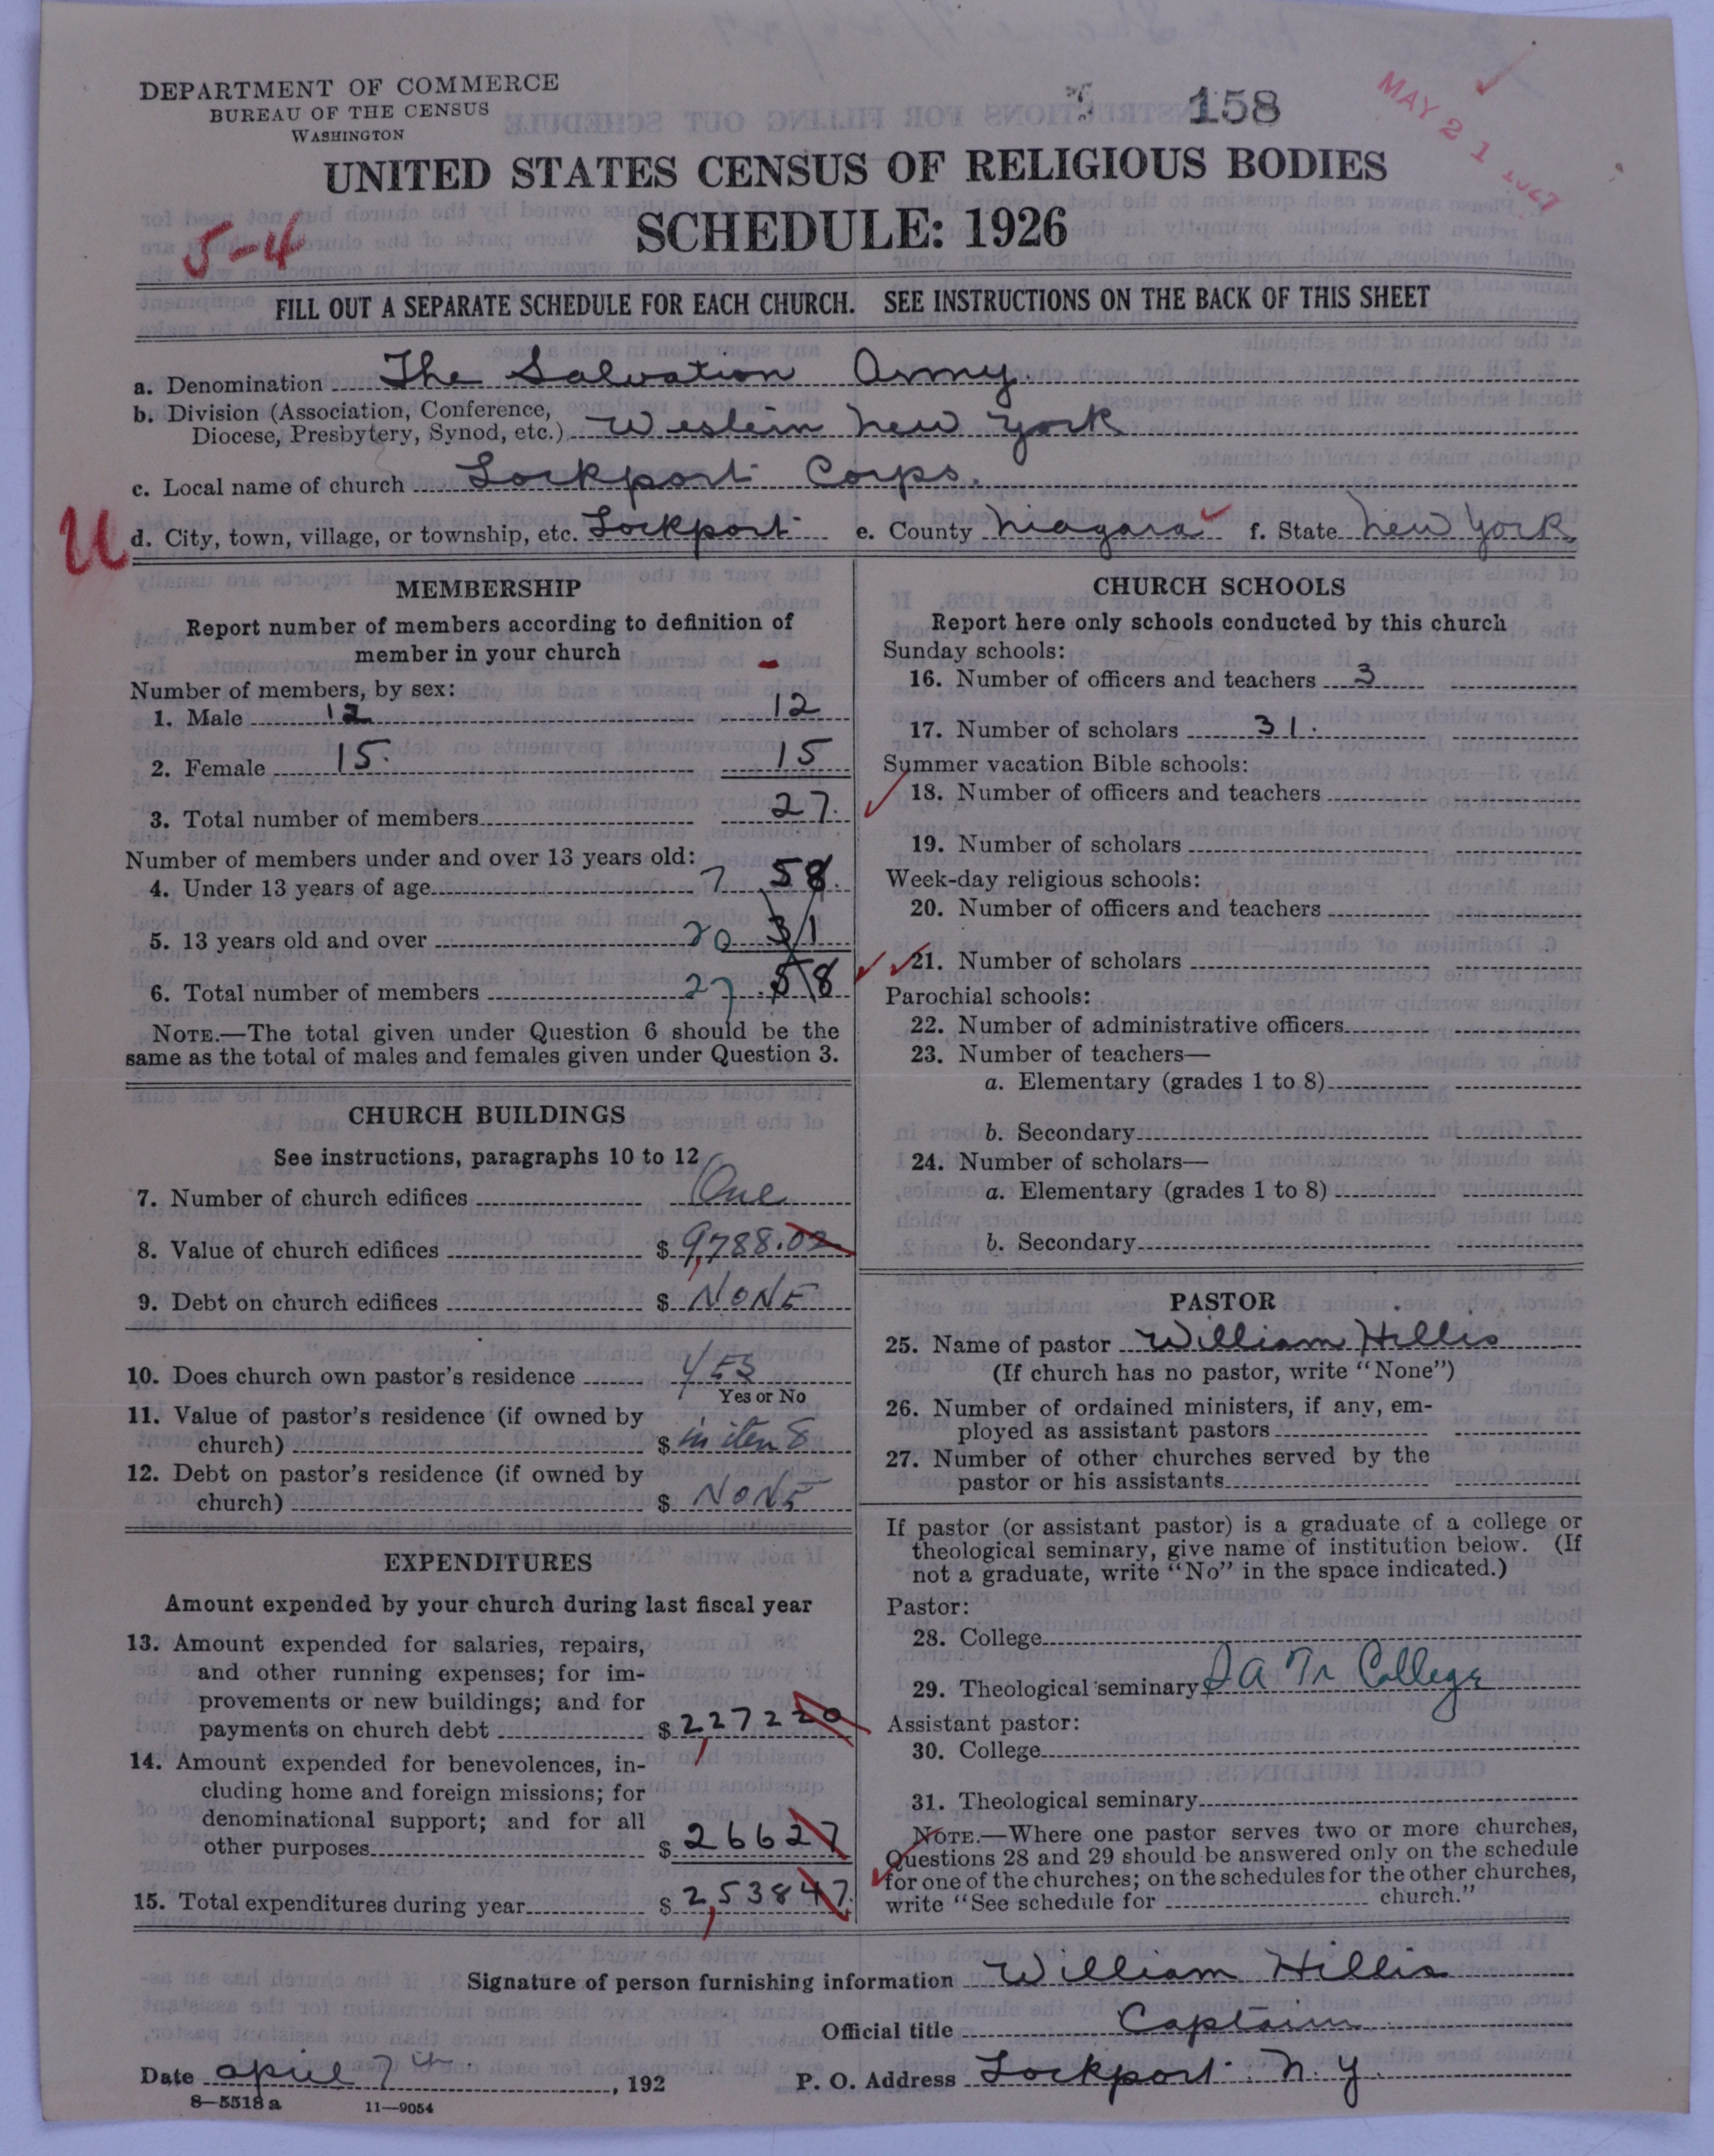 DEPARTMENT OF COMMERCE
BUREAU OF THE CENSUS
WASHINGTON
158
MAY 21 1927
UNITED STATES CENSUS OF RELIGIOUS BODIES
SCHEDULE: 1926
5-4
FILL OUT A SEPARATE SCHEDULE FOR EACH CHURCH. SEE INSTRUCTIONS ON THE BACK OF THIS SHEET
a. Denomination The Salvation Army.
b. Division (Association, Conference, Diocese, Presbytery, Synod, etc.) Western New York
c. Local name of church Lockport Corps.
U
d. City, town, village, or township, etc. Lockport e. County Niagara f. State New York
MEMBERSHIP
Report number of members according to definition of
member in your church
Number of members, by sex:
1. Male 12 12
2. Female 15. 15
3. Total number of members 27.
Number of members under and over 13 years old:
4. Under 13 years of age 7 58.
5. 13 years old and over 20 31
6. Total number of members 27 58
NOTE.—The total given under Question 6 should be the
same as the total of males and females given under Question 3.
CHURCH BUILDINGS
See instructions, paragraphs 10 to 12
7. Number of church edifices One
8. Value of church edifices $ 9,788.02
9. Debt on church edifices $ NONE
10. Does church own pastor's residence YES
Yes or No
11. Value of pastor's residence (if owned by
church) $ in item 8
12. Debt on pastor's residence (if owned by
church) $ NONE
EXPENDITURES
Amount expended by your church during last fiscal year
13. Amount expended for salaries, repairs,
and other running expenses; for im-
provements or new buildings; and for
payments on church debt $ 2,272 20
14. Amount expended for benevolences, in-
cluding home and foreign missions; for
denominational support; and for all
other purposes $ 266 27
15. Total expenditures during year $ 2,538 47.
CHURCH SCHOOLS
Report here only schools conducted by this church
Sunday schools:
16. Number of officers and teachers 3
17. Number of scholars 31.
Summer vacation Bible schools:
18. Number of officers and teachers
19. Number of scholars
Week-day religious schools:
20. Number of officers and teachers
21. Number of scholars
Parochial schools:
22. Number of administrative officers
23. Number of teachers—
a. Elementary (grades 1 to 8)
b. Secondary
24. Number of scholars—
a. Elementary (grades 1 to 8)
b. Secondary
PASTOR
25. Name of pastor William Hillis
(If church has no pastor, write "None")
26. Number of ordained ministers, if any, em-
ployed as assistant pastors
27. Number of other churches served by the
pastor or his assistants
If pastor (or assistant pastor) is a graduate of a college or
theological seminary, give name of institution below. (If
not a graduate, write "No" in the space indicated.)
Pastor:
28. College
29. Theological seminary S A Tr College
Assistant pastor:
30. College
31. Theological seminary
NOTE.—Where one pastor serves two or more churches,
Questions 28 and 29 should be answered only on the schedule
for one of the churches; on the schedules for the other churches,
write "See schedule for church."
Signature of person furnishing information William Hillis
Official title Captain
Date April 7th. , 192
P. O. Address Lockport. N. Y.
8—5518 a 11—9054